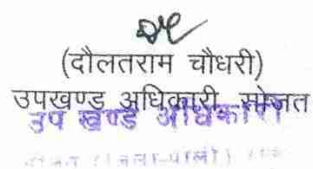 (दौलतराम चौधरी)
उपखण्ड अधिकारी, सोजत
उप खण्ड अधिकारी